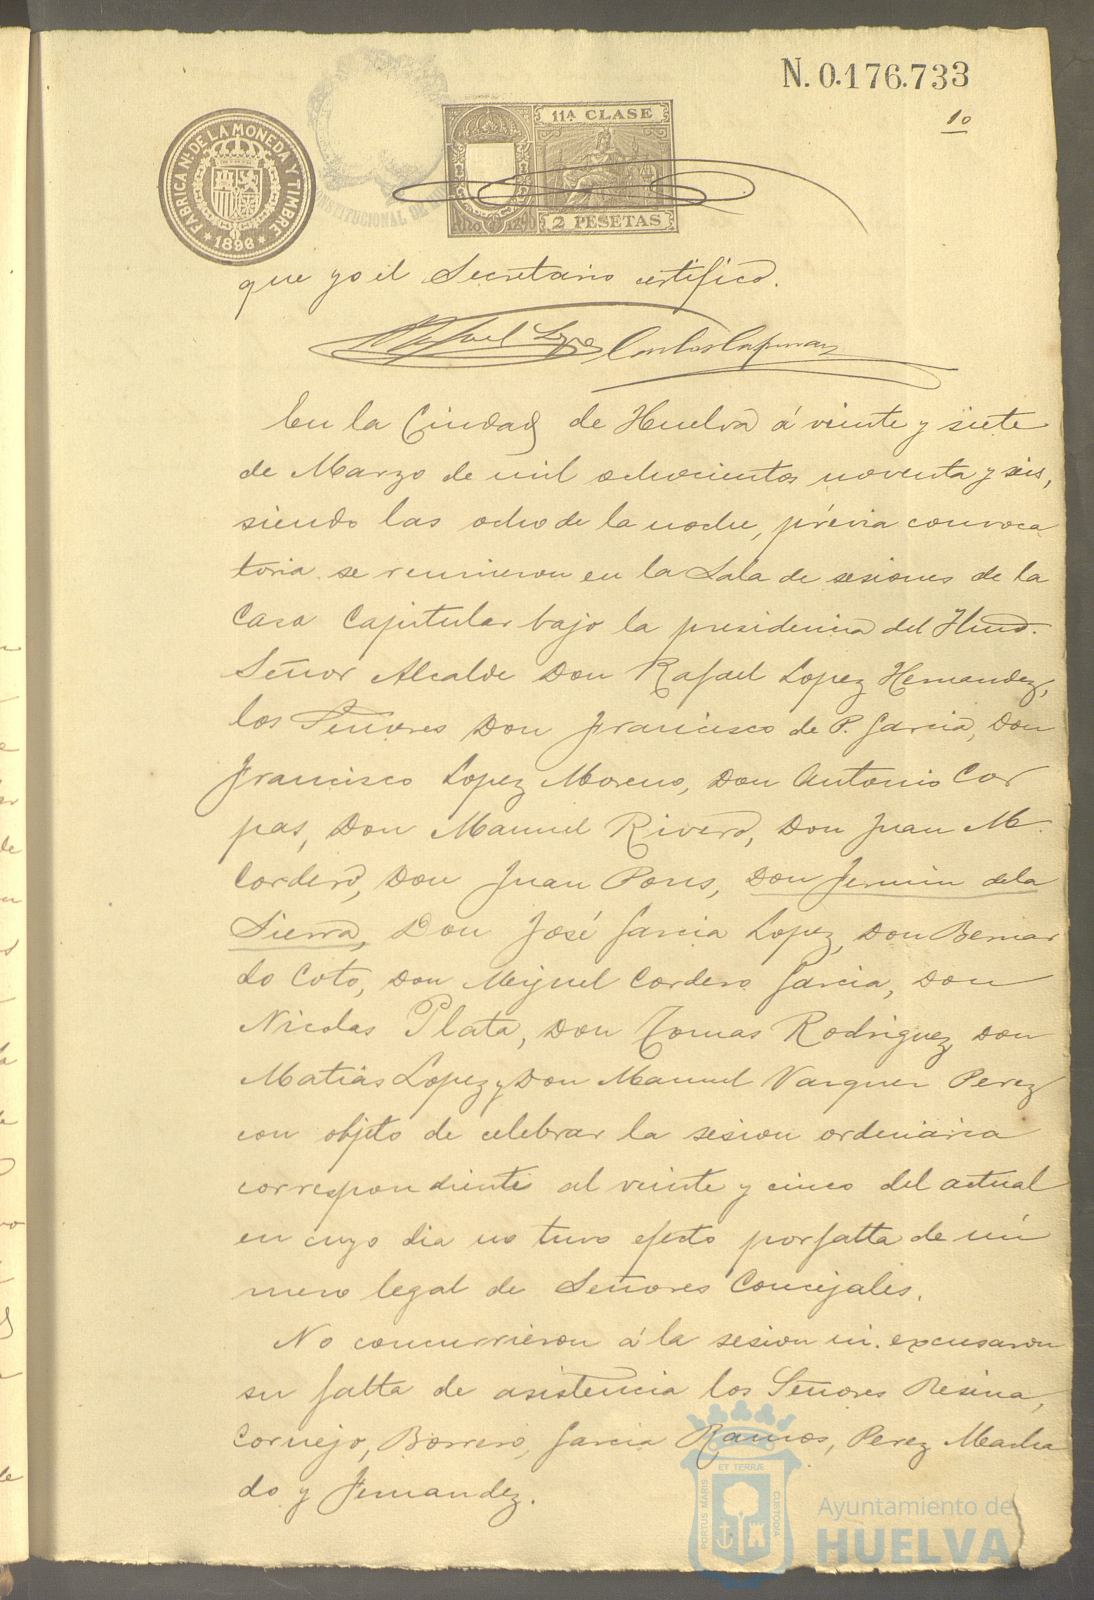 N. 0.176.733
10
FABRICA NL. DE LA MONEDA Y TIMBRE
1896
11A CLASE
2 PESETAS
que yo el Secretario certifico.
Rafael Lopez
En la Ciudad de Huelva á veinte y siete
de Marzo de mil ochocientos noventa y seis,
siendo las ocho de la noche, prévia convoca
toria se reunieron en la Sala de sesiones de la
Casa Capitular bajo la presidencia del
Señor Alcalde Don Rafael Lopez Hernandez,
los Señores Don Francisco de P. Garcia, Don
Francisco Lopez Moreno, Don Antonio Cor
pas, Don Manuel Rivero, Don Juan M.
Cordero, Don Juan Pons, Don Fermin de la
Sierra, Don José Garcia Lopez, Don Bernar
do Coto, Don Miguel Cordero Garcia, Don
Nicolas Plata, Don Tomas Rodriguez, Don
Matias Lopez y Don Manuel Vazquez Perez
con objeto de celebrar la sesion ordinaria
correspondiente al veinte y cinco del actual
en cuyo dia no tuvo efecto por falta de nú
mero legal de Señores Concejales.
No concurrieron á la sesion ni excusaron
su falta de asistencia los Señores Resina,
Cornejo, Borrero, Garcia Ramos, Perez Macha
do y Fernandez.
PORTUS MARIS ET TERRÆ CUSTODIA
Ayuntamiento de
HUELVA